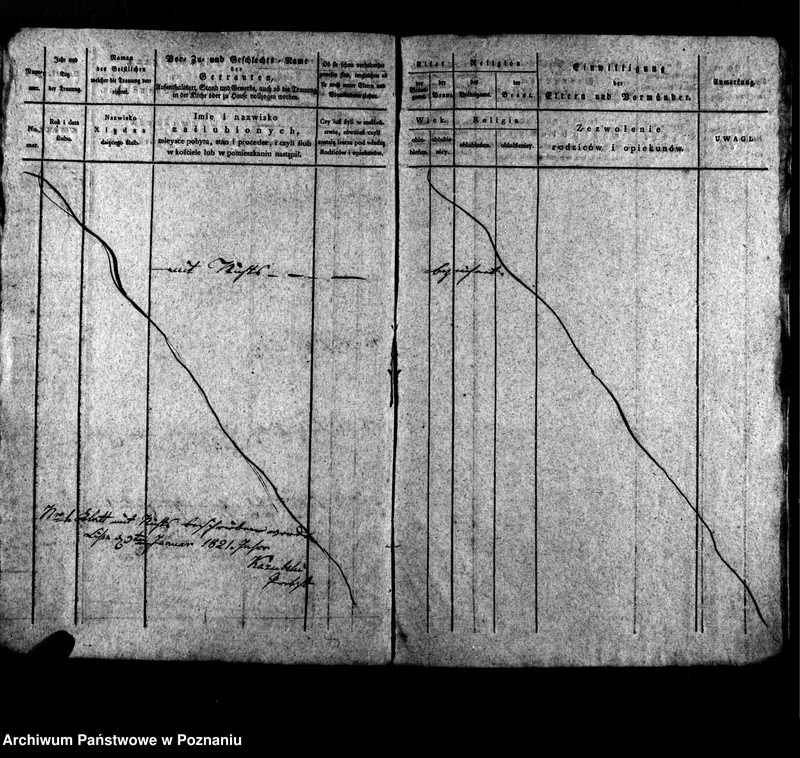 Num-
mer.
Jahr und
Tag
der Trauung.
Namen
des Geistlichen
welcher die Trauung ver-
richtet.
Vor- Zu- und Geschlechts-Name
der
Getrauten,
Aufenthaltsort, Stand und Gewerbe, auch ob die Trauung
in der Kirche oder zu Hause vollzogen worden.
Ob sie schon verheirathet
gewesen sind, imgleichen ob
sie noch unter Eltern und
Vormündern stehen.
Alter
der
Braut.
Religion
des
Bräutigams.
der
Braut.
Einwilligung
der
Eltern und Vormünder.
Anmerkung.
No.
mer.
Rok i data
ślubu.
Nazwisko
Xiędza
daiącego ślub.
Imie i nazwisko
zaślubionych,
mieysce pobytu, stan i proceder, i czyli ślub
w kościele lub w pomieszkaniu nastąpił.
Czy iuż byli w małżeń-
stwie, również czyli
zostaią ieszcze pod władzą
Rodziców i opiekunów.
Wiek
oblu-
bieńca.
oblubie-
nicy.
Religia
oblubieńca.
oblubienicy.
Zezwolenie
rodziców i opiekunów.
UWAGI.
mit Nichts
Blatt mit Nichts beschrieben worden
Januar 1821.
Archiwum Państwowe w Poznaniu